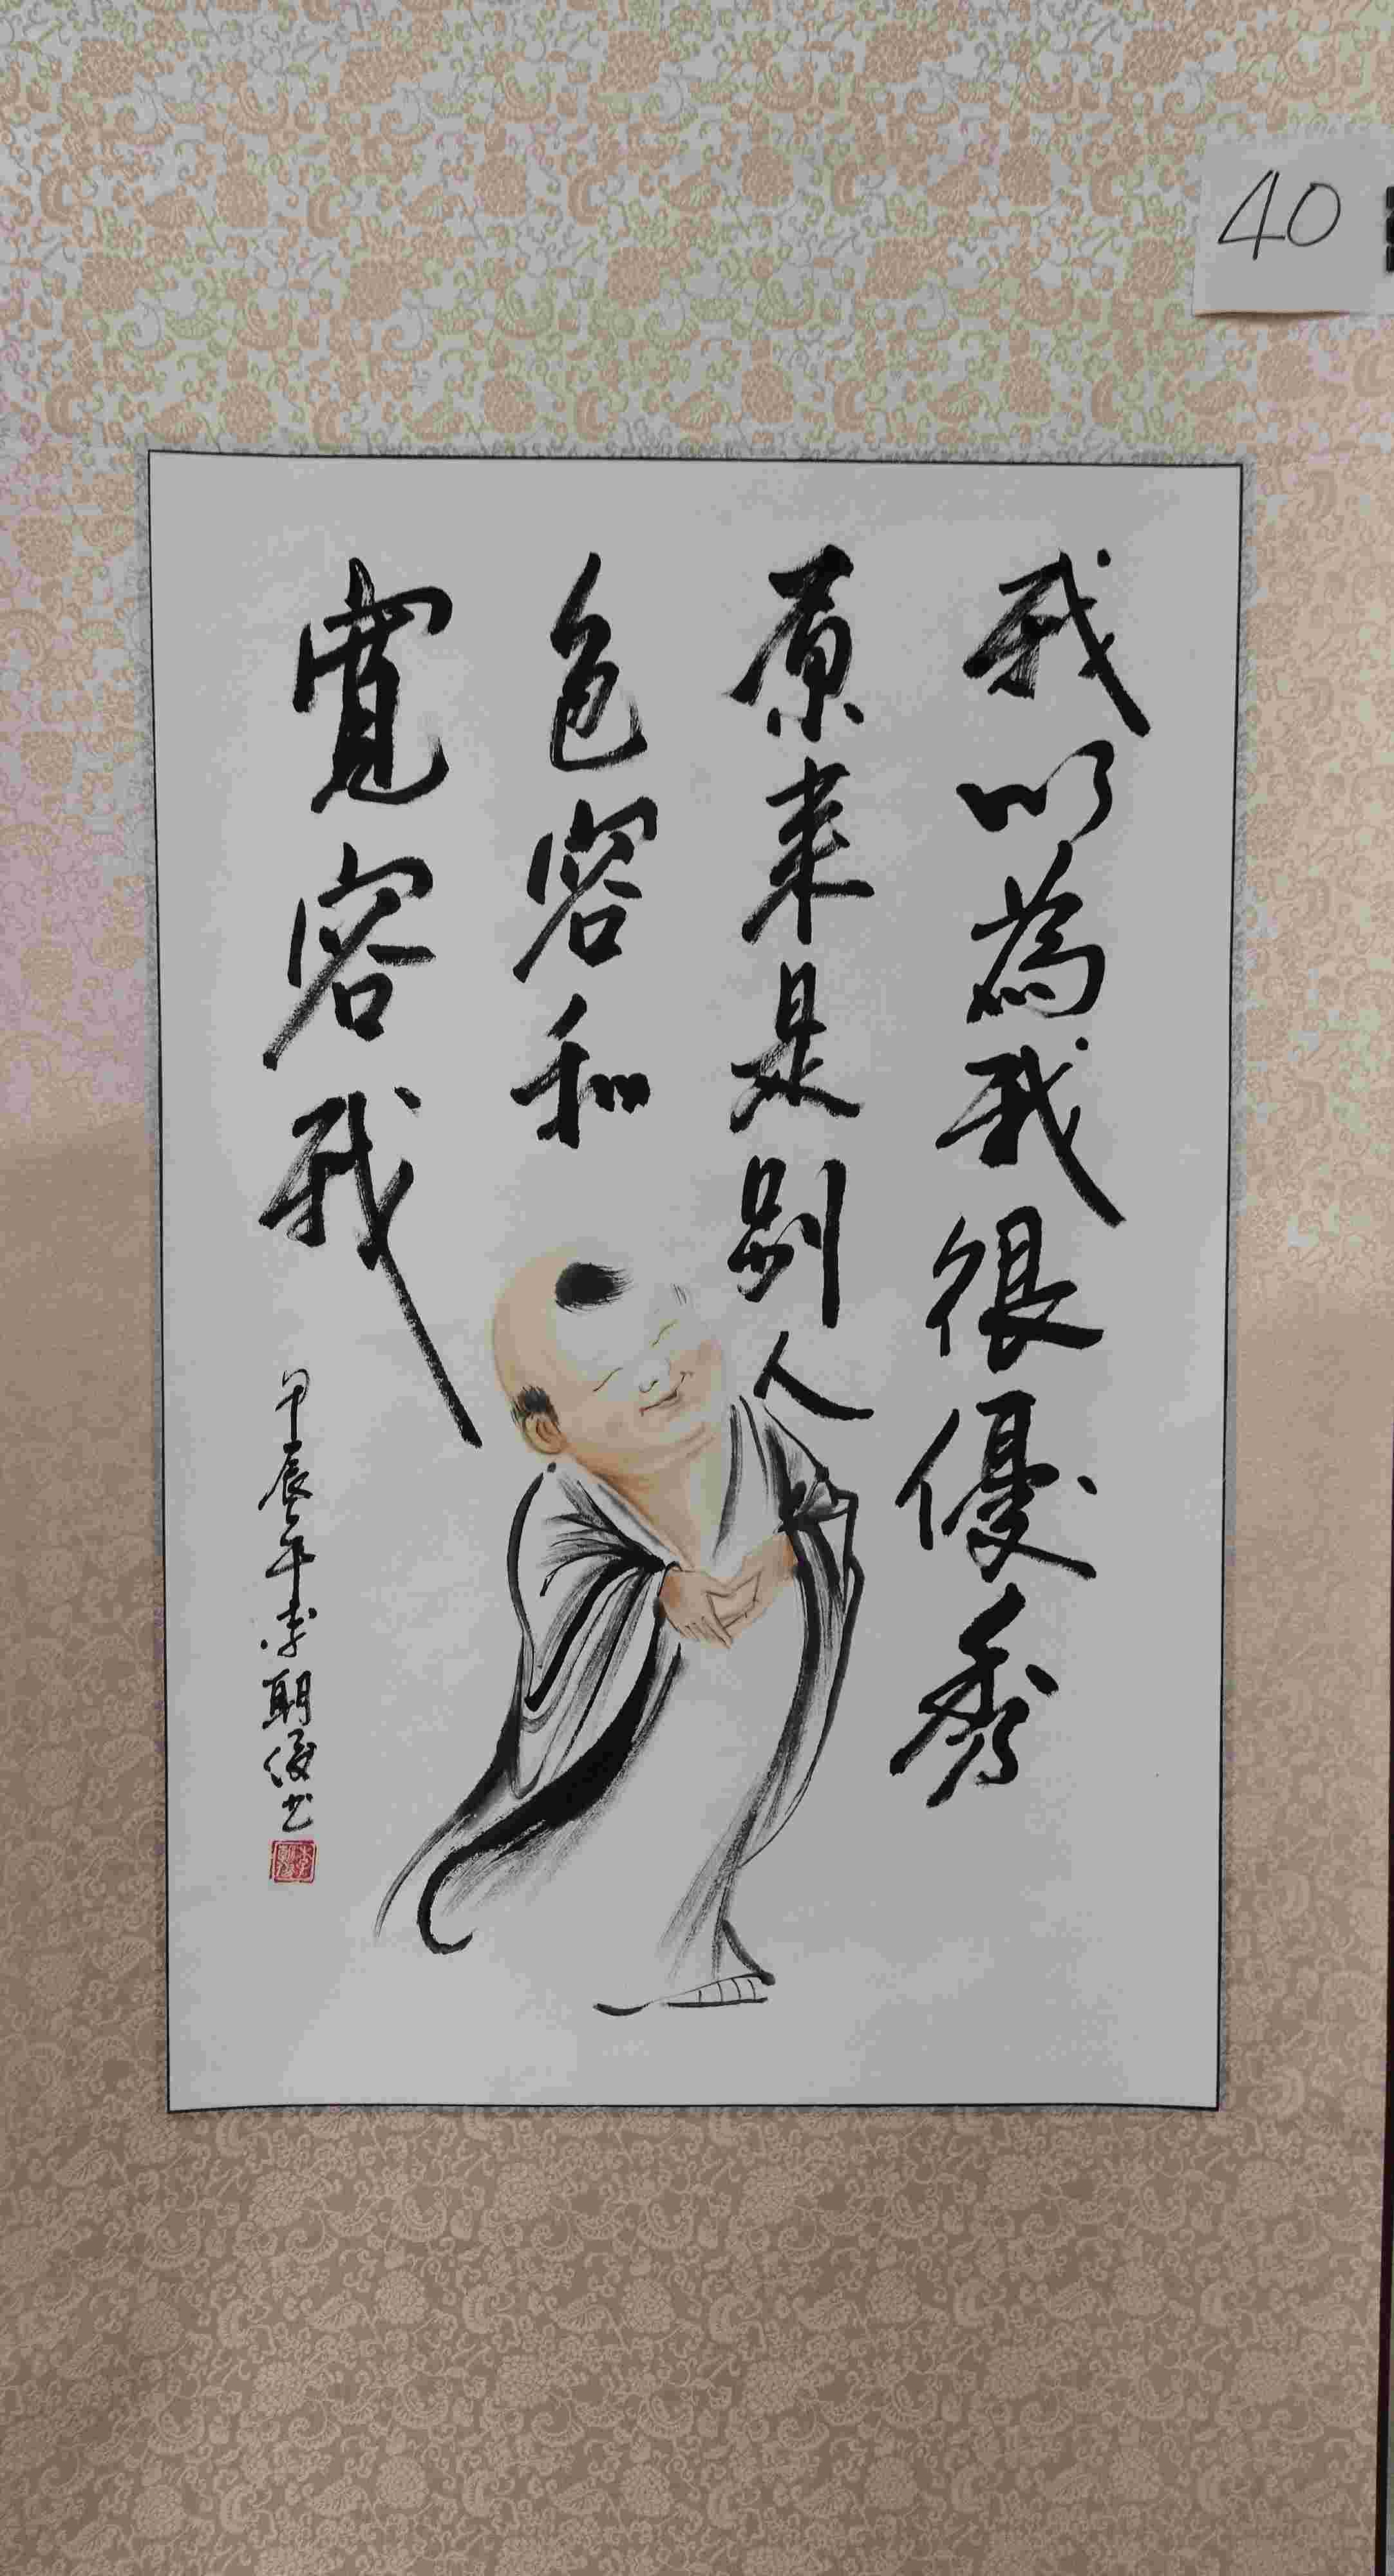 我以為我很優秀
原来是别人
包容和
寬容我
甲辰年李朝俊书
40